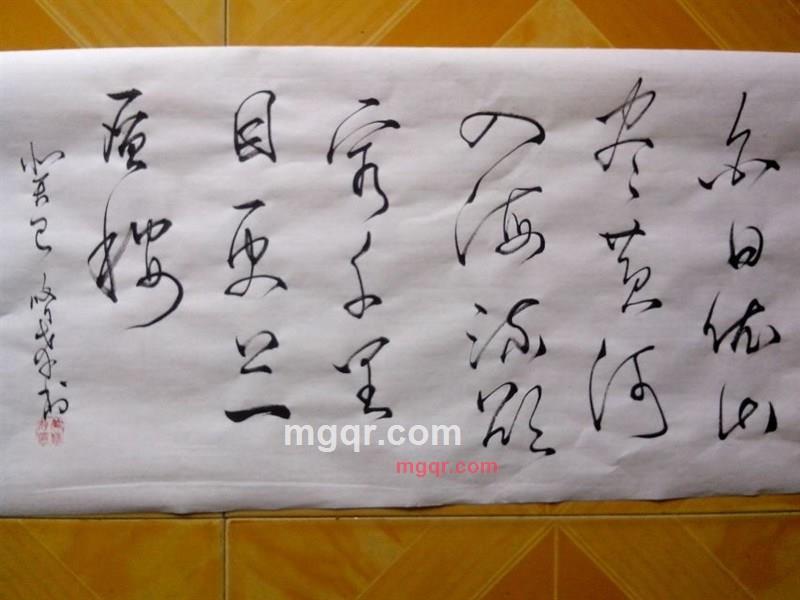 白日依山
尽黄河
入海流欲
穷千里
目更上一
層楼
癸巳
mgqr.com
mgqr.com